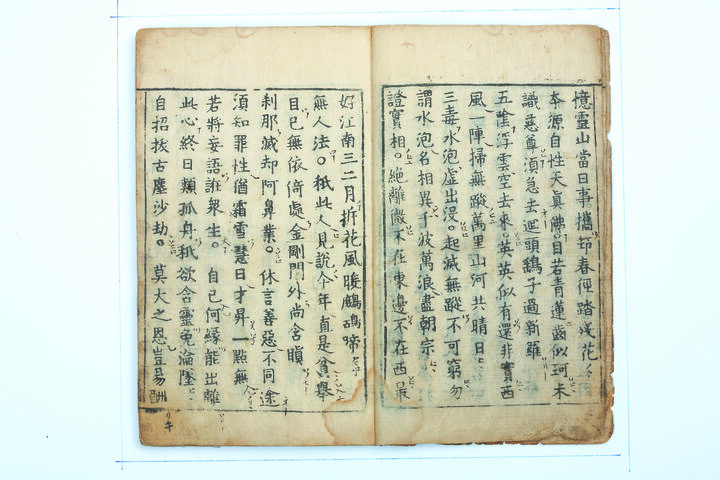 憶靈山當日事攜筇春徑踏殘花
本源自性天眞佛。目若青蓮齒似珂未
識慈尊須急去迴頭鷂子過新羅
五陰浮雲空去來英英似有還非實西
風一陣掃無蹤萬里山河共晴日
三毒水泡虛出沒。起滅無蹤不可窮勿
謂水泡名相異千波萬浪盡朝宗
證實相。絕離微不在東邊不在西最
好江南三二月折花風暖鷓鴣啼
無人法。秖此人見說今年直是貧擧
目已無依倚處金剛門外尚含瞋
刹那滅却阿鼻業。休言善惡不同途
須知罪性猶霜雪慧日才昇一點無
若將妄語誑衆生。自己何緣能出離
此心終日類孤舟秖欲含靈免淪墜
自招拔舌塵沙劫。莫大之恩豈易酬